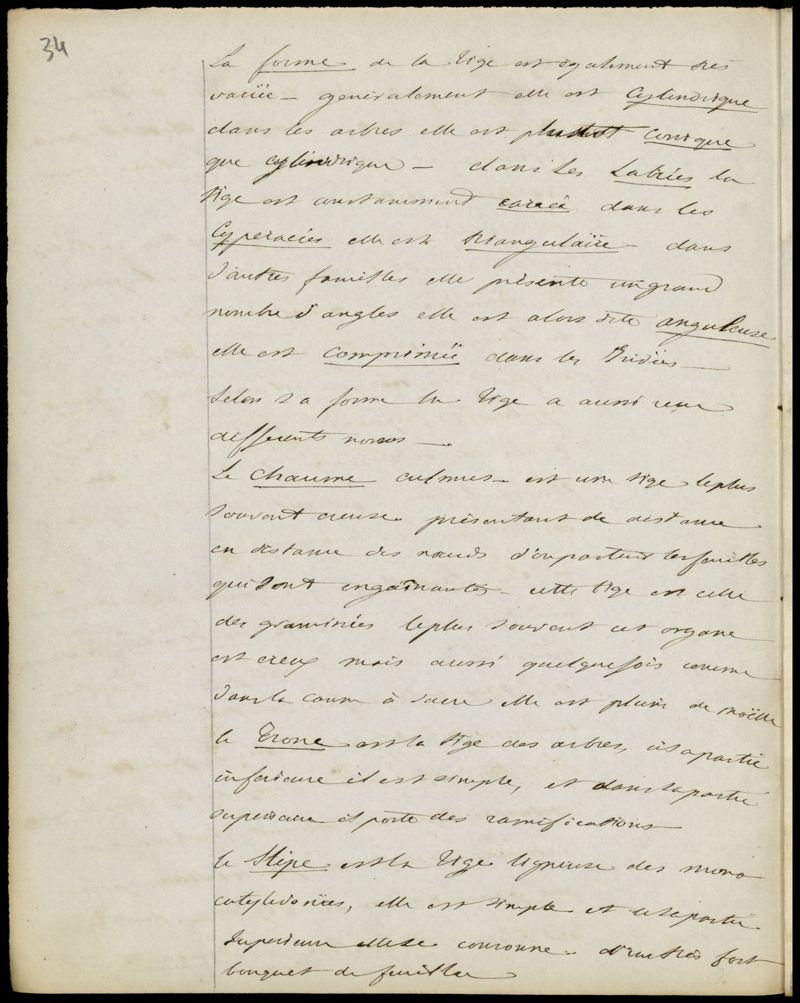 34
La forme de la tige est également très
variée – généralement elle est cylindrique
dans les arbres elle est plustot conique
que cylindrique – dans les Labiées la
tige est constamment carrée dans les
Cyperacées elle est triangulaire – dans
d'autres familles elle présente un grand
nombre d'angles elle est alors dite anguleuse
elle est comprimée dans les Iridées –
Selon sa forme la tige a aussi reçu
differents noms –.
Le chaume culmus – est une tige le plus
souvent creuse présentant de distance
en distance des nœuds d'ou partent les feuilles
qui sont engainantes – cette tige est celle
des graminées le plus souvent cet organe
est creux mais aussi quelquefois comme
dans la canne à sucre elle est pleine de moëlle
le Tronc est la tige des arbres, à sa partie
inferieure il est simple, et dans sa partie
superieure il porte des ramifications
le Stipe est la tige ligneuse des mono
cotyledonées, elle est simple et à sa partie
superieure elle se couronne d'un très fort
bouquet de feuilles